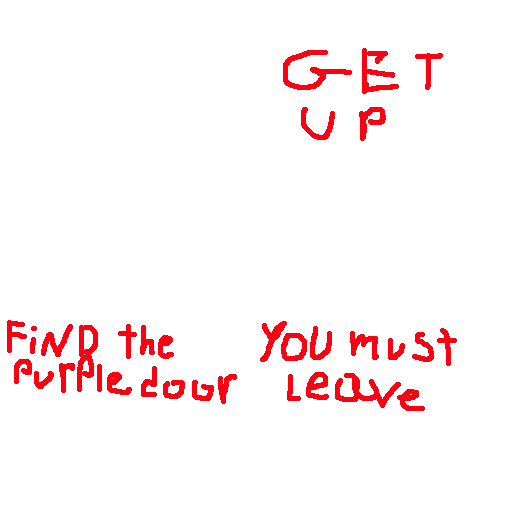 GET
UP
FiND the
PurPle door
YOU must
Leave